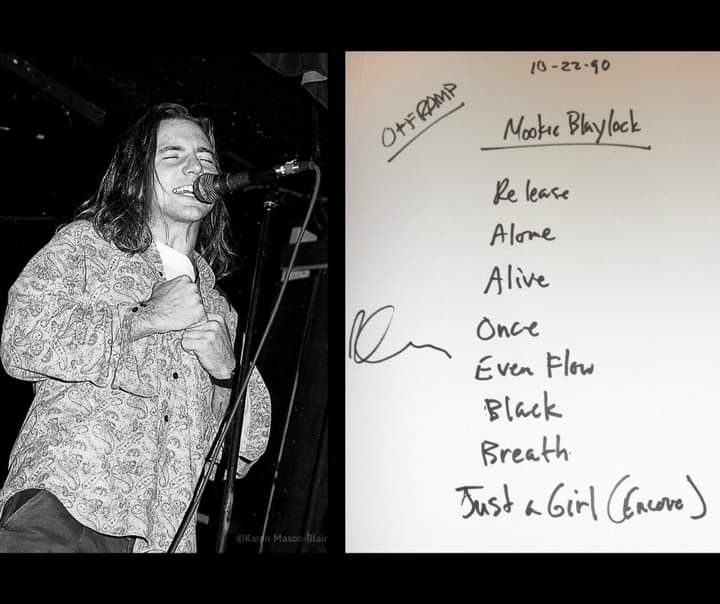 10-22-90
OFF RAMP
Mookie Blaylock
Release
Alone
Alive
Once
Even Flow
Black
Breath
Just a Girl (Encore)
©Karen Mason-Blair